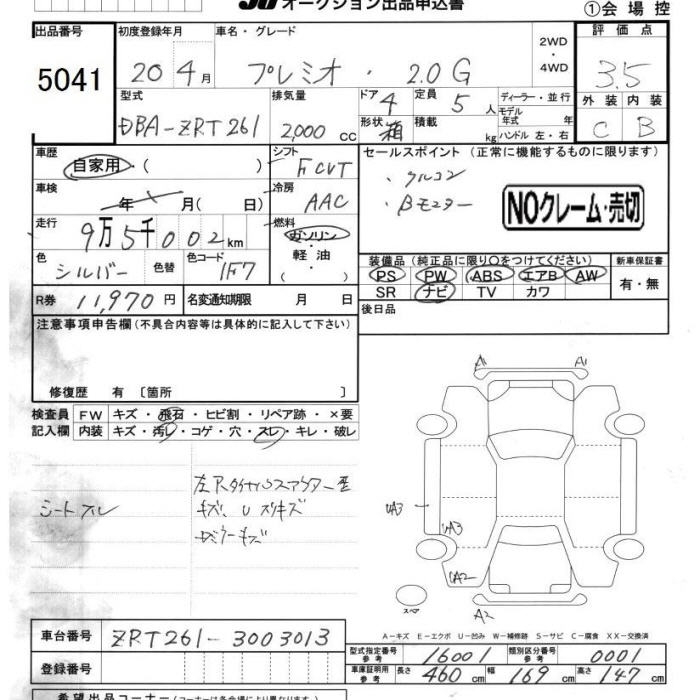 オークション出品申込書
①会場控
出品番号
5041
初度登録年月
20 4月
車名・グレード
プレミオ・2.0G
2WD・4WD
評価点
3.5
外装 内装
C B
型式
DBA-ZRT261
排気量
2,000cc
ドア 4
形状 箱
定員 5人
積載 kg
ディーラー・並行
モデル年式 年
ハンドル 左・右
車歴
自家用・( )
シフト
FCVT
セールスポイント(正常に機能するものに限ります)
・クルコン
・Bモニター
NOクレーム・売切
車検
年 月(日)
冷房
AAC
走行
9万5千002km
燃料
ガソリン・軽油・( )
色
シルバー
色替
色コード
1F7
装備品(純正品に限り○をつけてください)
PS PW ABS エアB AW
SR ナビ TV カワ
新車保証書
有・無
R券 11,970円
名変通知期限 月 日
後日品
注意事項申告欄(不具合内容等は具体的に記入して下さい)
修復歴 有〔箇所 〕
検査員 FW キズ・飛石・ヒビ割・リペア跡・×要
記入欄 内装 キズ・汚レ・コゲ・穴・スレ・キレ・破レ
シートスレ
キズ、U スリキズ
A1 A1
UA3
UA3
UA2
A2
スペア
A-キズ E-エクボ U-凹み W-補修跡 S-サビ C-腐食 XX-交換済
車台番号 ZRT261-3003013
型式指定番号 参考 16001
類別区分番号 参考 0001
登録番号
車庫証明用 参考 長さ 460cm 幅 169cm 高さ 147cm
希望出品コーナー(コーナーは各会場により異なります)